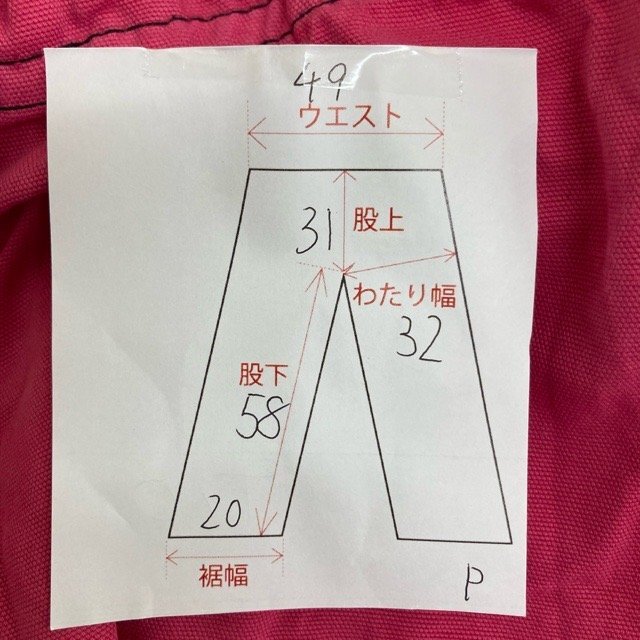 49
ウエスト
31
股上
わたり幅
32
股下
58
20
裾幅
P